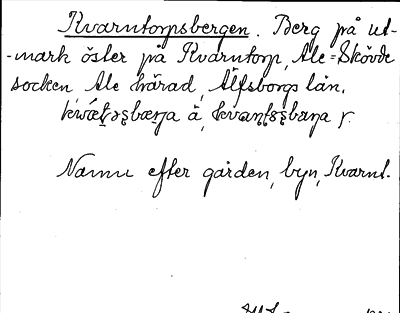 Kvarntorpsbergen. Berg på ut-
-mark öster på Kvarntorp, Ale-Skövde
socken, Ale härad, Älfsborgs län.
å,
Namn efter gården, byn, Kvarnt.